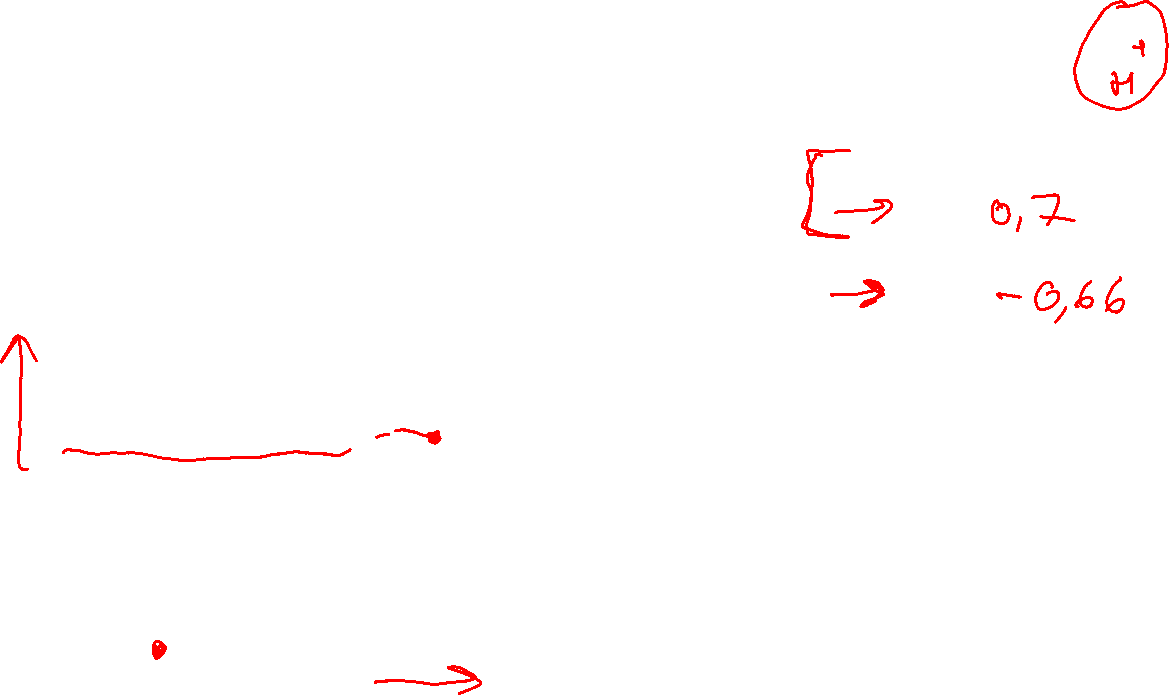 H+
→ 0,7
→ -0,66